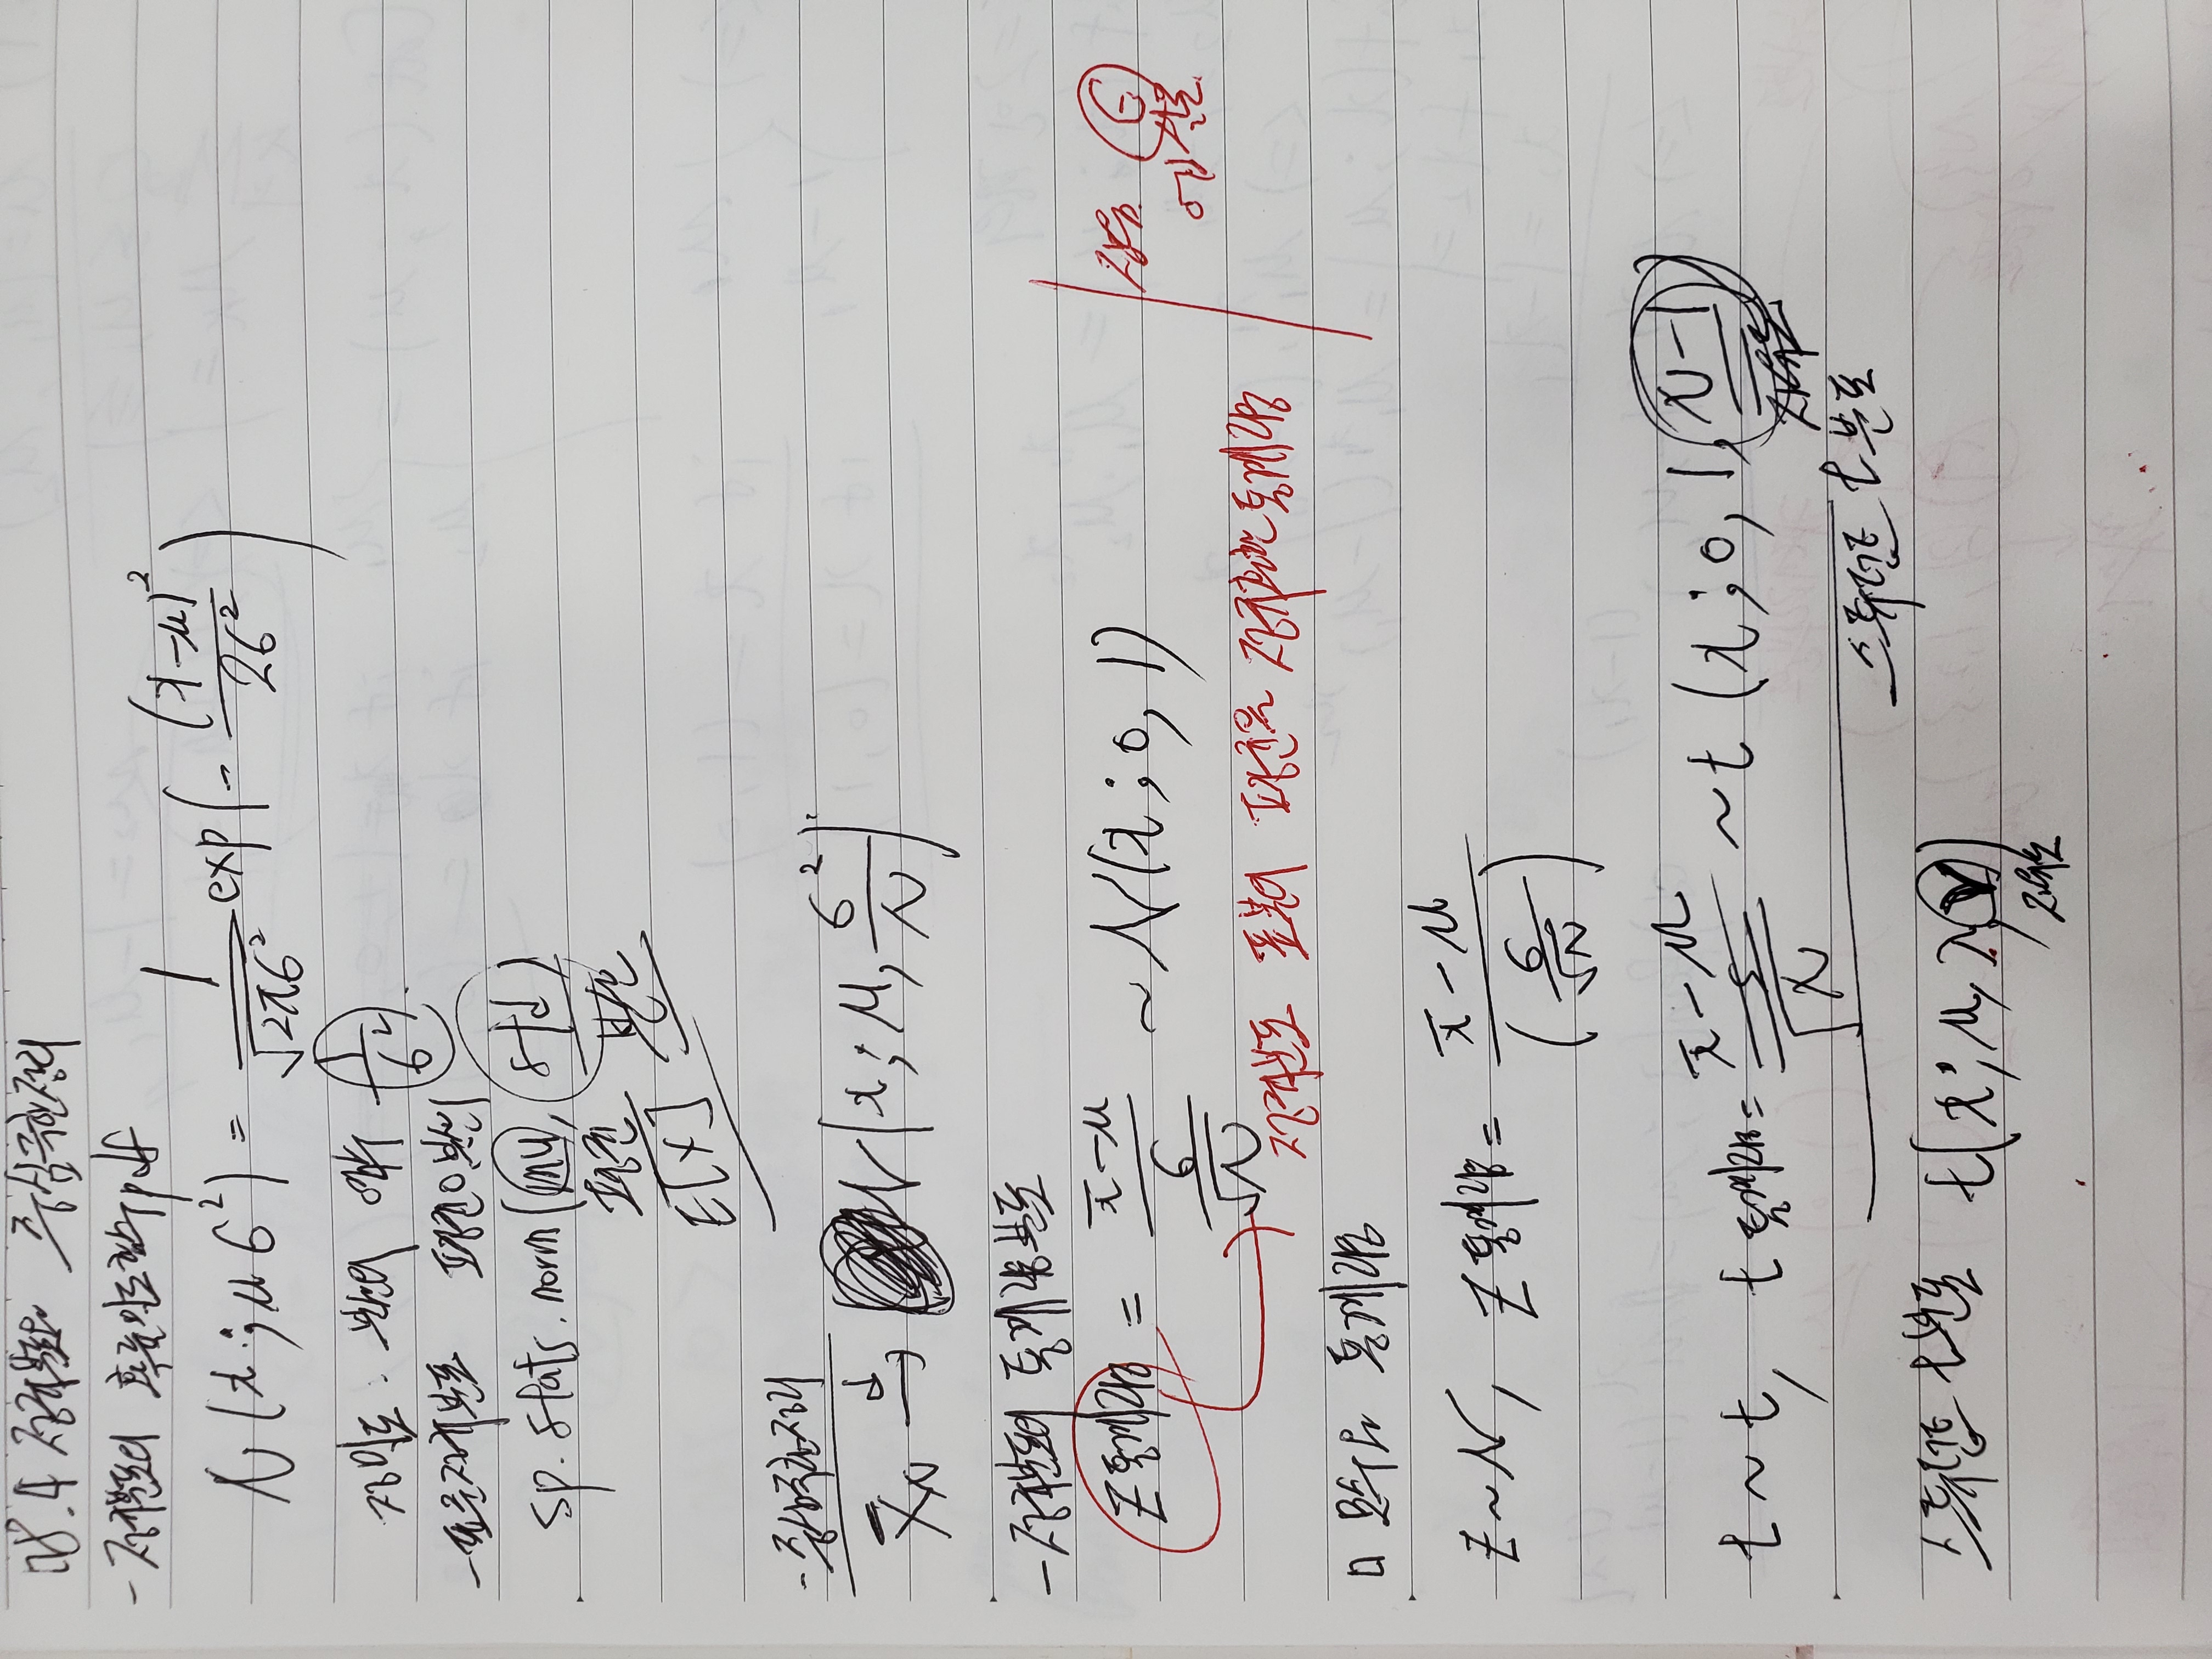 □8.4 정규분포와 중심극한정리
- 정규분포의 확률밀도함수 pdf
N(x ; μ σ²) = 1/√2πσ² exp(- (x-μ)²/2σ²)
정밀도 : 분산의 역수 1/σ².
- 표준정규분포 평균0 분산1
sp. stats. norm(mu, std)
평균 분산
E[X]
- 중심극한정리
X̄_N →d N(x ; μ, σ²/N)
- 정규분포의 통계량분포
Z통계량 = (x̄-μ)/(σ/√N) ~ N(x ; 0, 1)
잡음 ϵ
엡실론
정규분포 표본의 평균을 정규화한 통계량
□ 모수와 통계량
Z ~ N, Z통계량 = (x̄ - μ)/(σ/√N)
t ~ t, t통계량 = (x̄ - μ)/(s/√N) ~ t (x ; 0, 1, N-1)
자유도
스튜던트 t분포
스튜던트 t분포 t(x; μ, λ, ν)
자유도